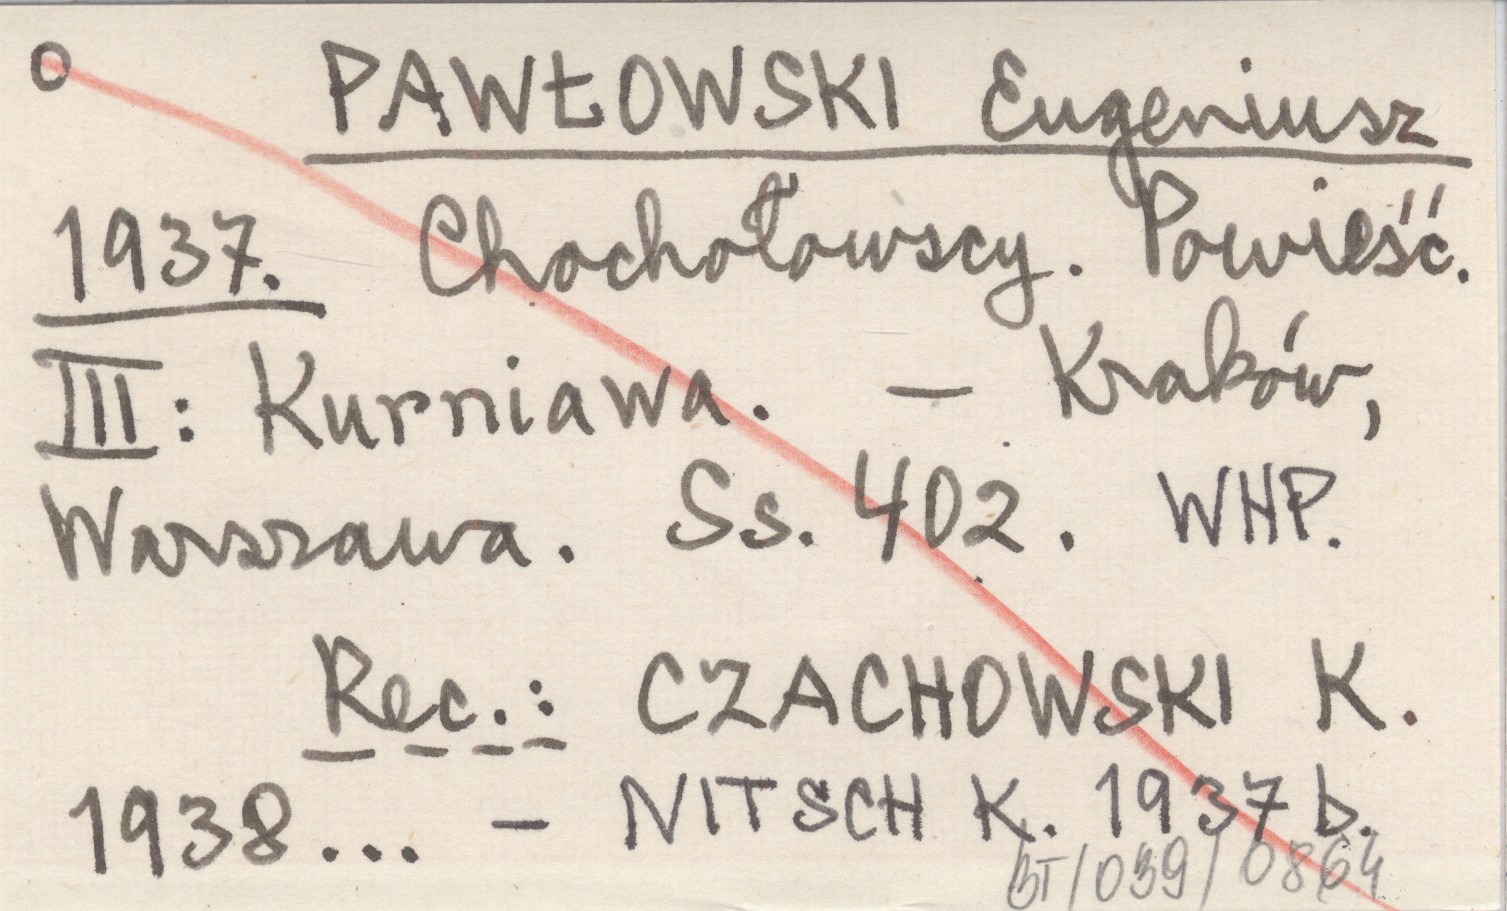 O PAWŁOWSKI Eugeniusz
1937. Chochołowscy. Powieść.
III: Kurniawa. – Kraków,
Warszawa. Ss. 402. WHP.
Rec.: CZACHOWSKI K.
1938... – NITSCH K. 1937 b.
BT/039/0864